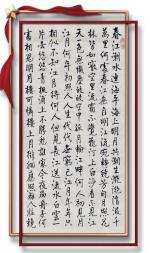 春江潮水連海平海上明月共潮生灩灩隨波千
萬里何處春江無月明江流宛轉繞芳甸月照花
林皆如霰空里流霜不覺飛汀上白沙看不見江
天一色無纖塵皎皎空中孤月輪江畔何人初見月
江月何年初照人人生代代無窮已江月年年只
相似不知江月待何人但見長江送流水白雲一
片去悠悠青楓浦上不勝愁誰家今夜扁舟子何
處相思明月樓可憐樓上月徘徊應照離人妝鏡